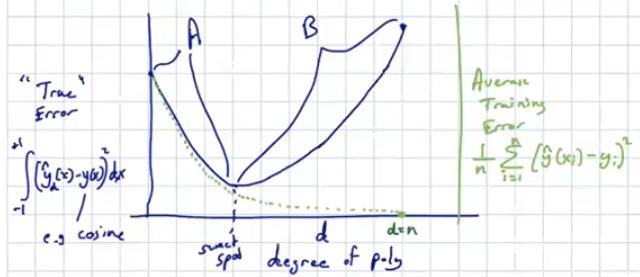 A
B
"True"
Error
∫₋₁⁺¹ (ŷ_d(x) - y(x))² dx
e.g cosine
sweet
spot
d
degree of poly
d=n
Average
Training
Error
1/n Σᵢ₌₁ⁿ (ŷ(xᵢ) - yᵢ)²